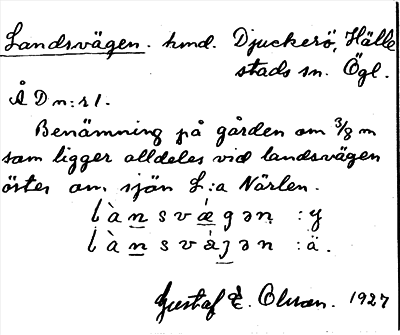 Landsvägen. hmd. Djuckerö, Hälle
stads sn. Ögl.
Å D n:r 1.
Benämning på gården om 3/8 m
som ligger alldeles vid landsvägen
öster om sjön L:a Närlen.
l à n s v ǽ g ə n̥ : y
l à n s v ǽ j ə n : ä.
Gustaf E. Olsson. 1927